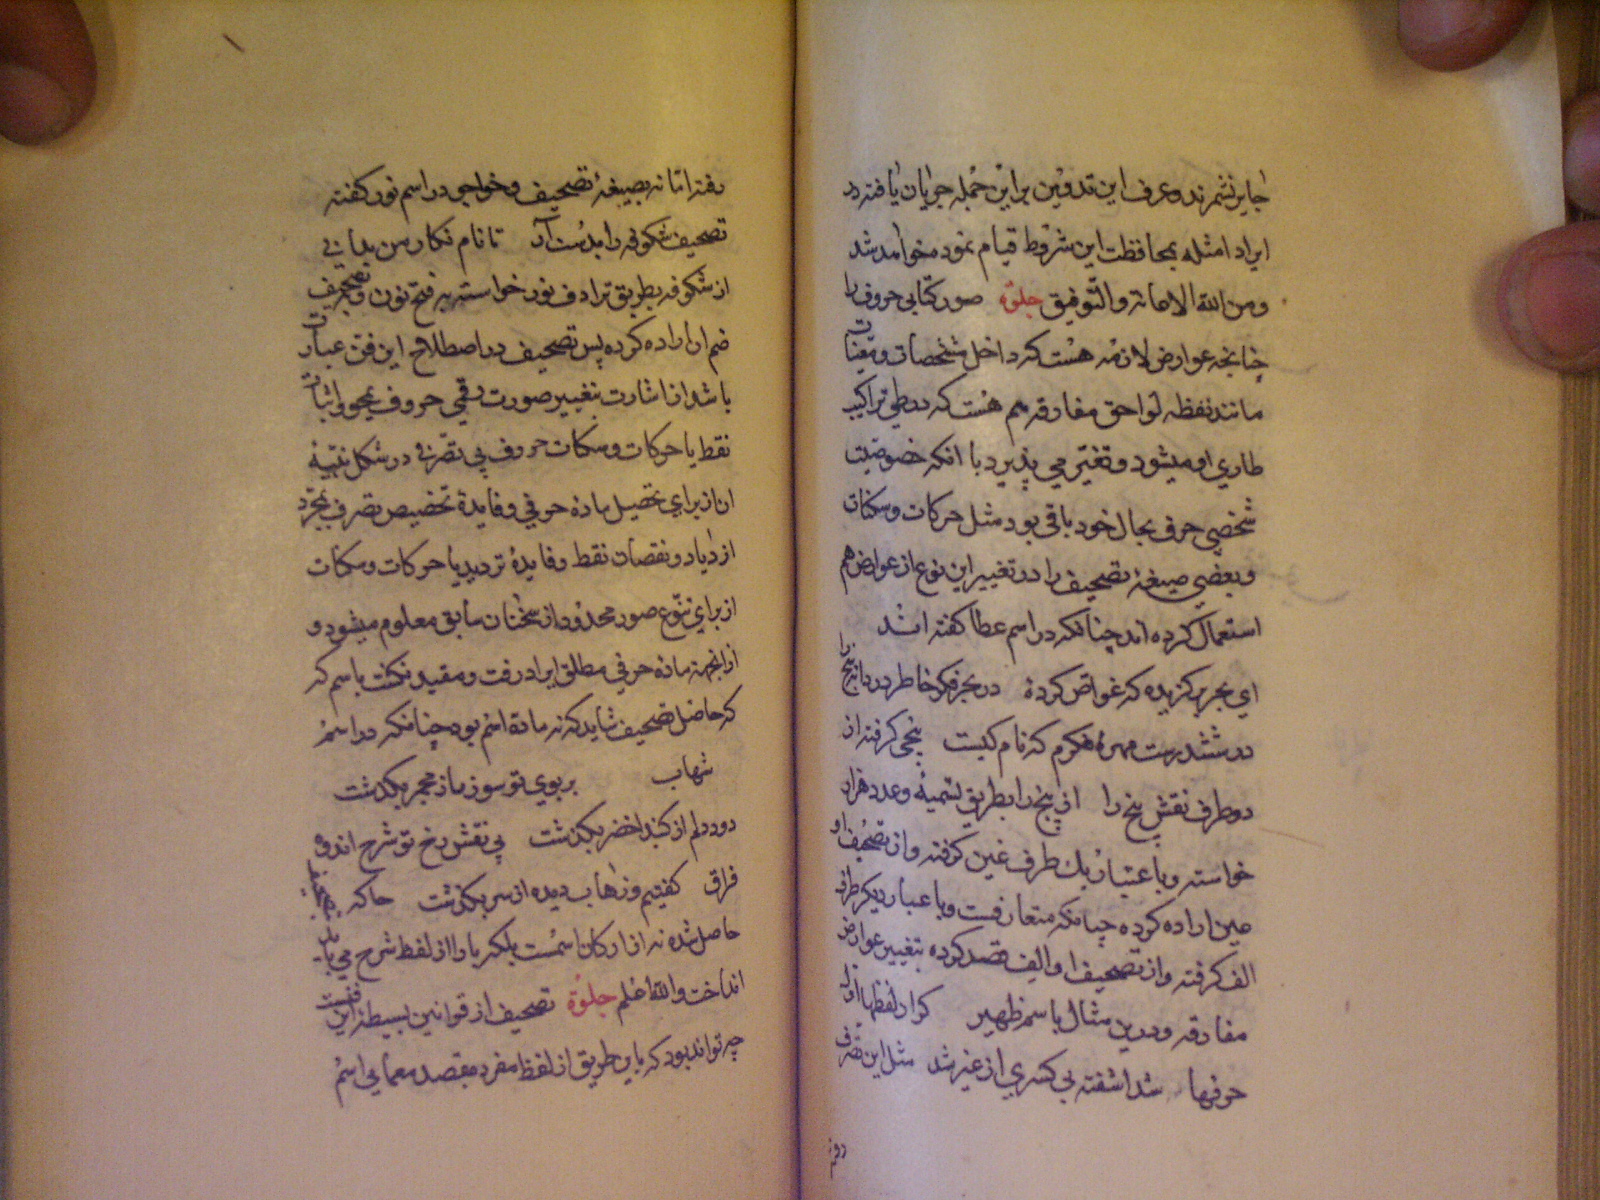 جایز نشمرند و عرف این تدوین براین جمله جریان یافته در
ایراد امثله بمحافظت این شروط قیام نموده خواهد شد
ومن الله الاعانة والتوفیق جلوه صور کتابی حروف را
چنانچه عوارض لازمه هست که داخل مشخصات و تعینات
مانند نقطه لواحق مفارقه هم هست که در طی تراکیب
طاری او میشود و تغیر می پذیرد با انکه خصوصیت
شخصی حرف بحال خود باقی بود مثل حرکات و سکنات
وبعضی صیغهٔ تصحیف را در تغییر این نوع از عوارض هم
استعمال کرده اند چنانکه در اسم عطا کفته اند
ای بحر برکزیده که غواص کرده در بحر فکر خاطر دریا
در ششدرست مهره فکرم که نام کیست پنجی کرفته از
دو طرف نقش پنج را از پنج را بطریق تسمیه و عدد هزار
خواسته وباعتبار یک طرف غین کرفته واز تصحیف او
عین اراده کرده چنانکه متعارفست وباعتبار دیکر طرف
الف کرفته واز تصحیف او الف قصد کرده بتغییر عوارض
مفارقه ودرین مثال باسم ظهیر کرار لفظها اول
حرفها شد اشفته بی کسری از غیر شد مثل این تصرف
رفته امّا نه بصیغهٔ تصحیف وخواجو در اسم نور کفته
تصحیف شکوفه را بدست آر تا نام نکار من بدانی
از شکوفه بطریق ترادف نور خواسته به فتح نون و بتصحیف
ضم ان اراده کرده پس تصحیف در اصطلاح این فن عبارت
باشد از اشارت بتغییر صورت رقمی حروف بمحو واثبات
نقط یا حرکات و سکنات حروف بی تصرفی در شکل نتیجه
ان از برای تحصیل ماده حرفی و فایدهٔ تخصیص تصرف بمجرد
ازدیاد و نقصان نقط وفایدهٔ تردید یا حرکات و سکنات
از برای تنوع صور محدود از سخنان سابق معلوم میشود و
از انجهة ماده حرفی مطلق ایراد رفت ومقید نکشت باسم که
که حاصل تصحیف شاید که نه مادهٔ اسم بود چنانکه در اسم
شهاب بر بوی تو سوزم از مجمر بکذشت
دود دلم از کنبد اخضر بکذشت بی نقش رخ تو شرح اندوه
فراق کفتیم و زهاب دیده از سر بکذشت حا که بتصحیف
حاصل شده نه از ارکان اسمست بلکه با او از لفظ شرح می باید
انداخت والله اعلم جلوة تصحیف از قوانین بسیطهٔ این فنست
چه تواند بود که باین طریق از لفظ مفرد مقصد معمایی اسم